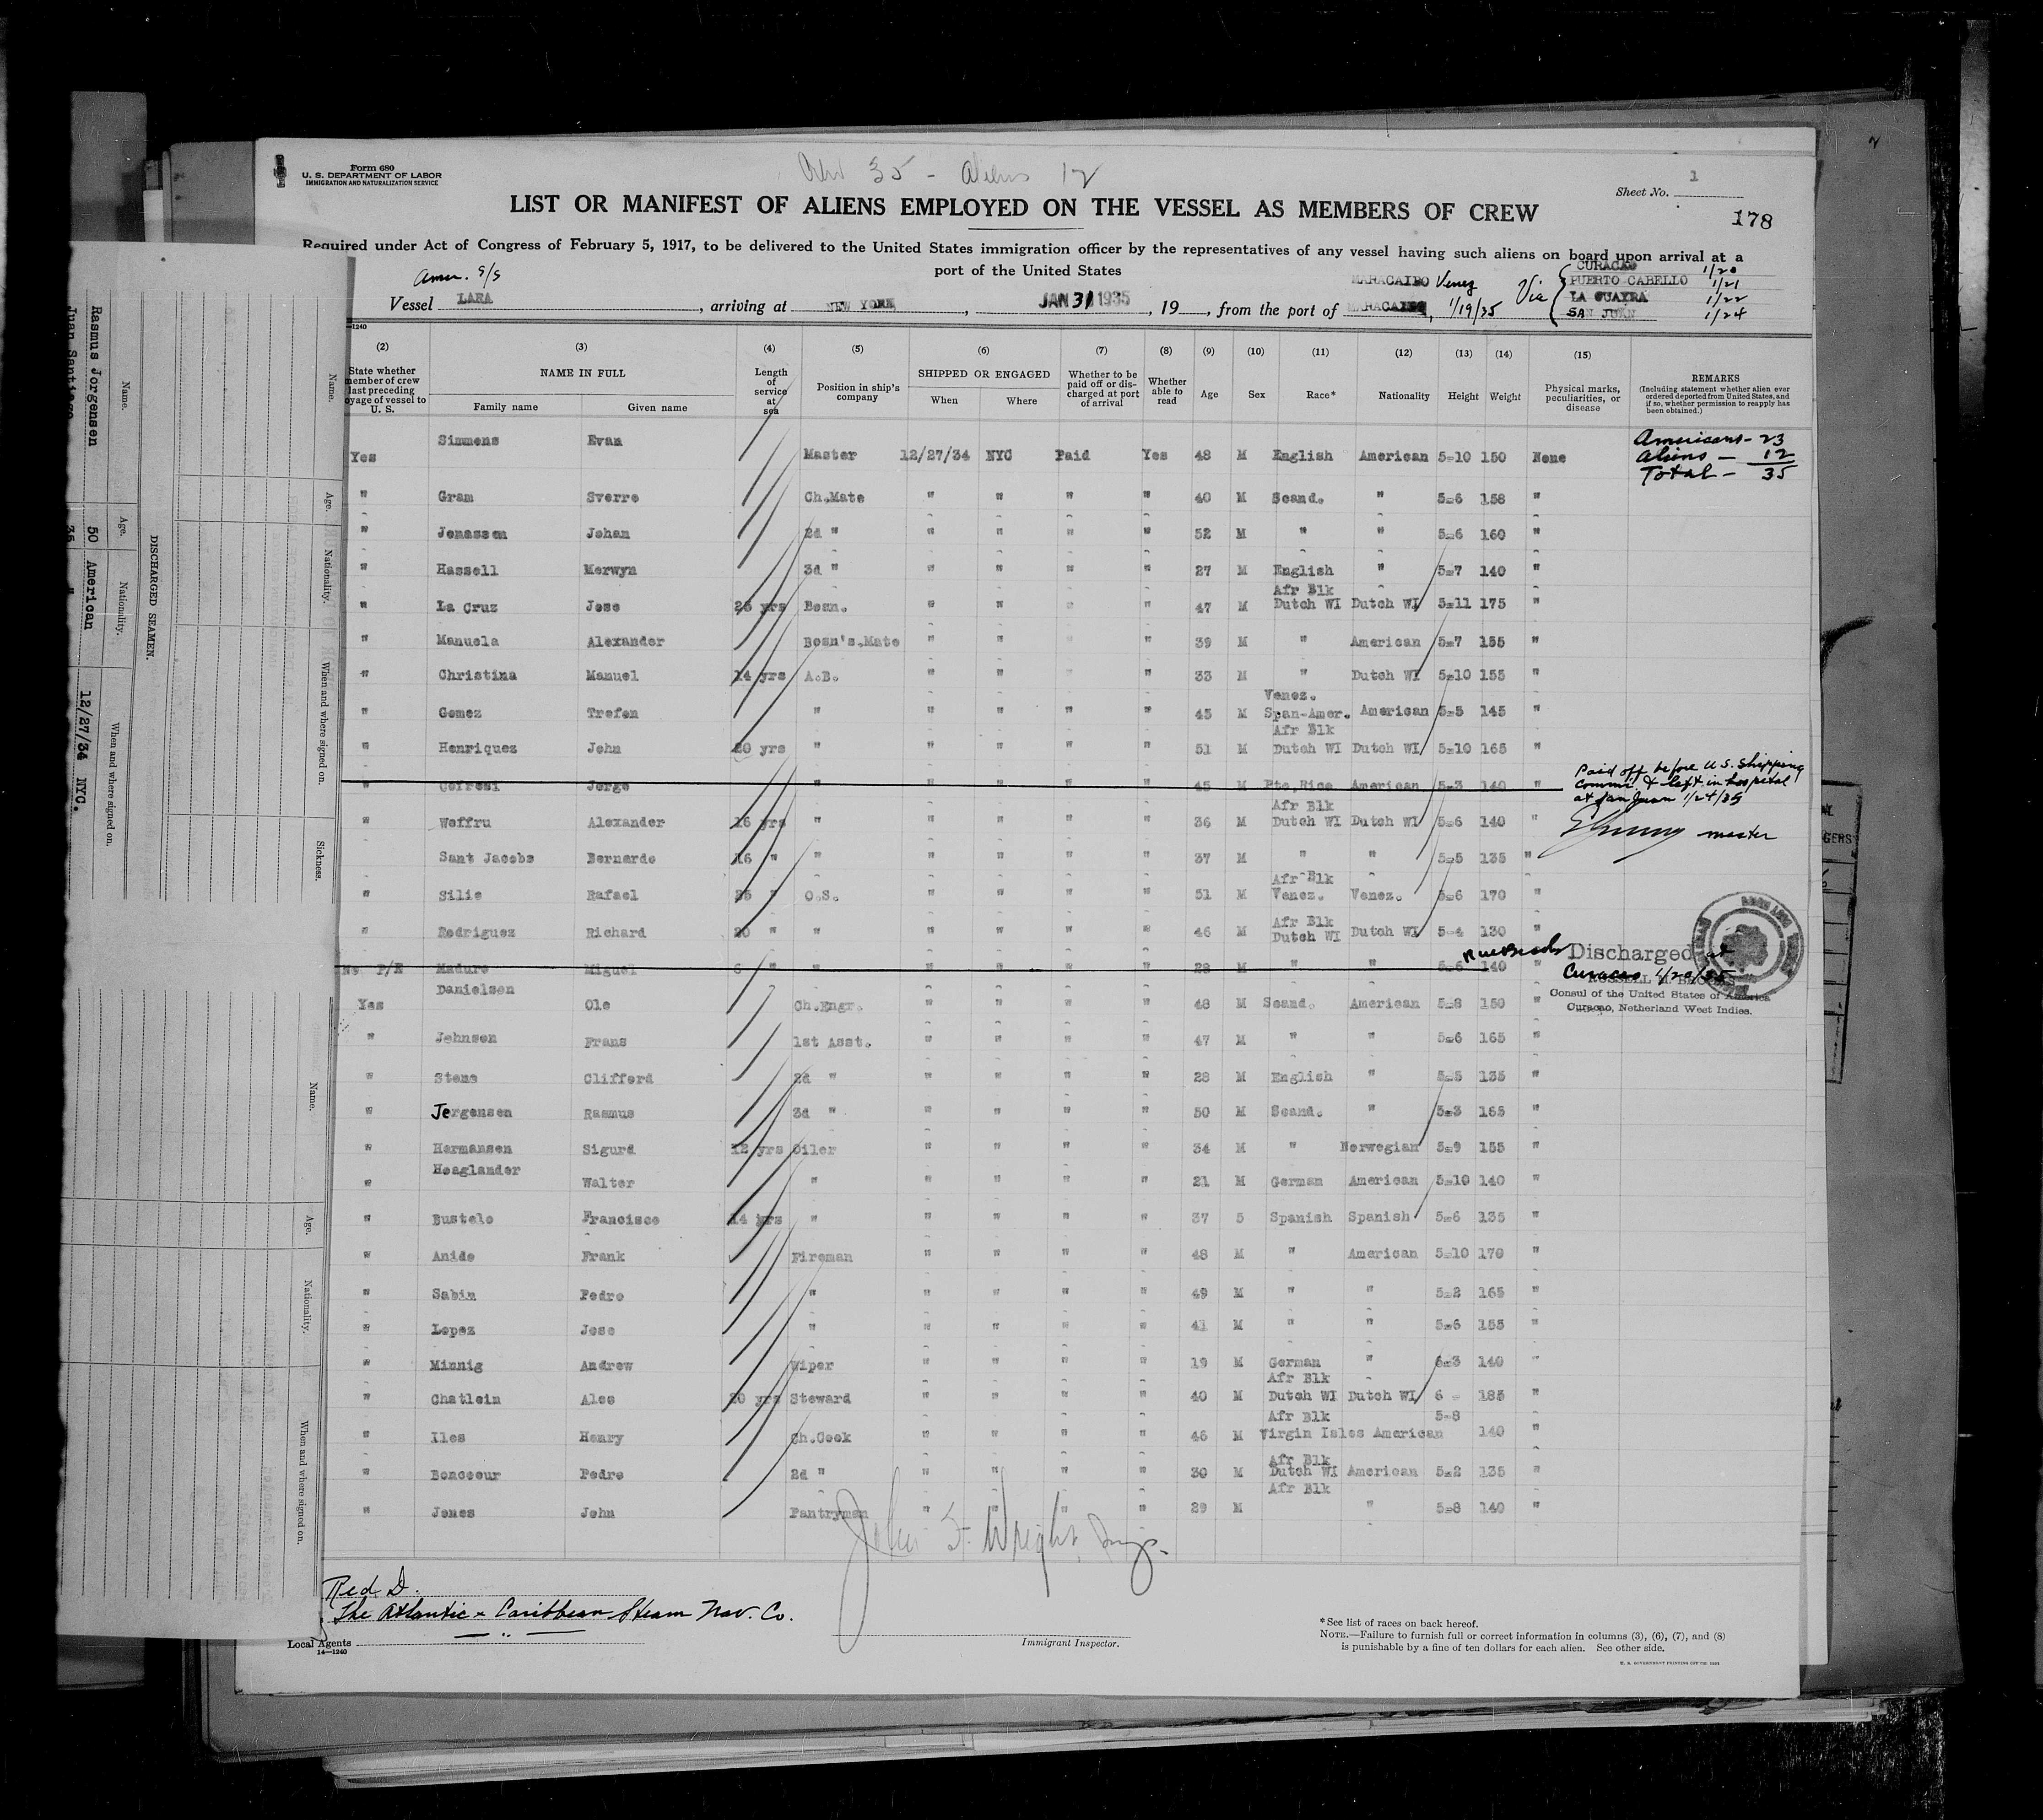 Form 680
U. S. DEPARTMENT OF LABOR
IMMIGRATION AND NATURALIZATION SERVICE
Crew 35 - Aliens 12
Sheet No. 1
178
LIST OR MANIFEST OF ALIENS EMPLOYED ON THE VESSEL AS MEMBERS OF CREW
Required under Act of Congress of February 5, 1917, to be delivered to the United States immigration officer by the representatives of any vessel having such aliens on board upon arrival at a
port of the United States
Amer. S/S
MARACAIBO Venez
Vessel LARA, arriving at NEW YORK, JAN 31 1935, 19, from the port of MARACAIBO, 1/19/35 Via
CURACAO 1/20
PUERTO CABELLO 1/21
LA GUAYRA 1/22
SAN JUAN 1/24
(2) (3) (4) (5) (6) (7) (8) (9) (10) (11) (12) (13) (14) (15)
State whether member of crew last preceding voyage of vessel to U. S.
NAME IN FULL
Family name Given name
Length of service at sea
Position in ship's company
SHIPPED OR ENGAGED
When Where
Whether to be paid off or discharged at port of arrival
Whether able to read
Age Sex Race* Nationality Height Weight
Physical marks, peculiarities, or disease
REMARKS
(Including statement whether alien ever ordered deported from United States, and if so, whether permission to reapply has been obtained.)
Americans - 23
Aliens - 12
Total - 35
Yes Simmons Evan Master 12/27/34 NYC Paid Yes 48 M English American 5-10 150 None
" Gram Sverre Ch.Mate " " " " 40 M Scand. " 5-6 158 "
" Jonassen Johan 2d " " " " " 52 M " " 5-6 160 "
" Hassell Merwyn 3d " " " " " 27 M English " 5-7 140 "
" La Cruz Jose 25 yrs Bosn. " " " " 47 M Afr Blk Dutch WI Dutch WI 5-11 175 "
" Manuela Alexander Bosn's.Mate " " " " 39 M " American 5-7 155 "
" Christina Manuel 14 yrs A.B. " " " " 33 M " Dutch WI 5-10 155 "
" Gomez Trofen " " " " " 45 M Venez. Span-Amer. American 5-5 145 "
" Henriquez John 20 yrs " " " " " 51 M Afr Blk Dutch WI Dutch WI 5-10 165 "
" Cofresi Jorge " " " " " 45 M Pto.Rico American 5-3 140 "
Paid off before U.S. Shipping
Commr. & left in hospital
at San Juan 1/24/35
master
" Weffru Alexander 16 yrs " " " " " 36 M Afr Blk Dutch WI Dutch WI 5-6 140 "
Sant Jacobs Bernardo 16 " " " " " " 37 M " " 5-5 135 "
" Silie Rafael 25 " O.S. " " " " 51 M Afr Blk Venez. Venez. 5-6 170 "
" Rodriguez Richard 20 " " " " " " 46 M Afr Blk Dutch WI Dutch WI 5-4 130 "
No P/H Maduro Miguel 6 " " " " " " 28 M " " 5-6 140 "
Discharged at
Curacao 1/20/35
RUSSELL M. BROOKS
Consul of the United States of America
Curaçao, Netherland West Indies.
Yes Danielsen Ole Ch.Engr. " " " " 48 M Scand. American 5-8 150 "
" Johnson Frans 1st Asst. " " " " 47 M " " 5-6 165 "
" Stone Clifford 2d " " " " " 28 M English " 5-5 135 "
" Jorgensen Rasmus 3d " " " " " 50 M Scand. " 5-3 165 "
" Hermansen Sigurd 12 yrs Oiler " " " " 34 M " Norwegian 5-9 155 "
" Hoaglander Walter " " " " " 21 M German American 5-10 140 "
" Bustelo Francisco 14 yrs " " " " " 37 5 Spanish Spanish 5-6 135 "
" Anido Frank Fireman " " " " 48 M " American 5-10 170 "
" Sabin Pedro " " " " " 49 M " " 5-2 165 "
" Lopez Jose " " " " " 41 M " " 5-6 155 "
" Minnig Andrew Wiper " " " " 19 M German " 6-3 140 "
" Chatlein Aloe 20 yrs Steward " " " " 40 M Afr Blk Dutch WI Dutch WI 6 - 185 "
" Iles Henry Ch.Cook " " " " 46 M Afr Blk Virgin Isles American 5-8 140 "
" Bonoeur Pedro 2d " " " " " 30 M Afr Blk Dutch WI American 5-2 135 "
" Jones John Pantryman " " " " 29 M Afr Blk " 5-8 140 "
John F. Wright Insp.
Red D.
The Atlantic & Caribbean Steam Nav. Co.
Local Agents
14-1240
Immigrant Inspector.
* See list of races on back hereof.
NOTE.—Failure to furnish full or correct information in columns (3), (6), (7), and (8)
is punishable by a fine of ten dollars for each alien. See other side.
DISCHARGED SEAMEN.
Name. Age. Nationality. When and where signed on.
Rasmus Jorgensen 50 American 12/27/34 NYC.
Juan Santiago 35 "
Name. Age. Nationality. When and where signed on. Sickness.
Name. Age. Nationality. When and where signed on.